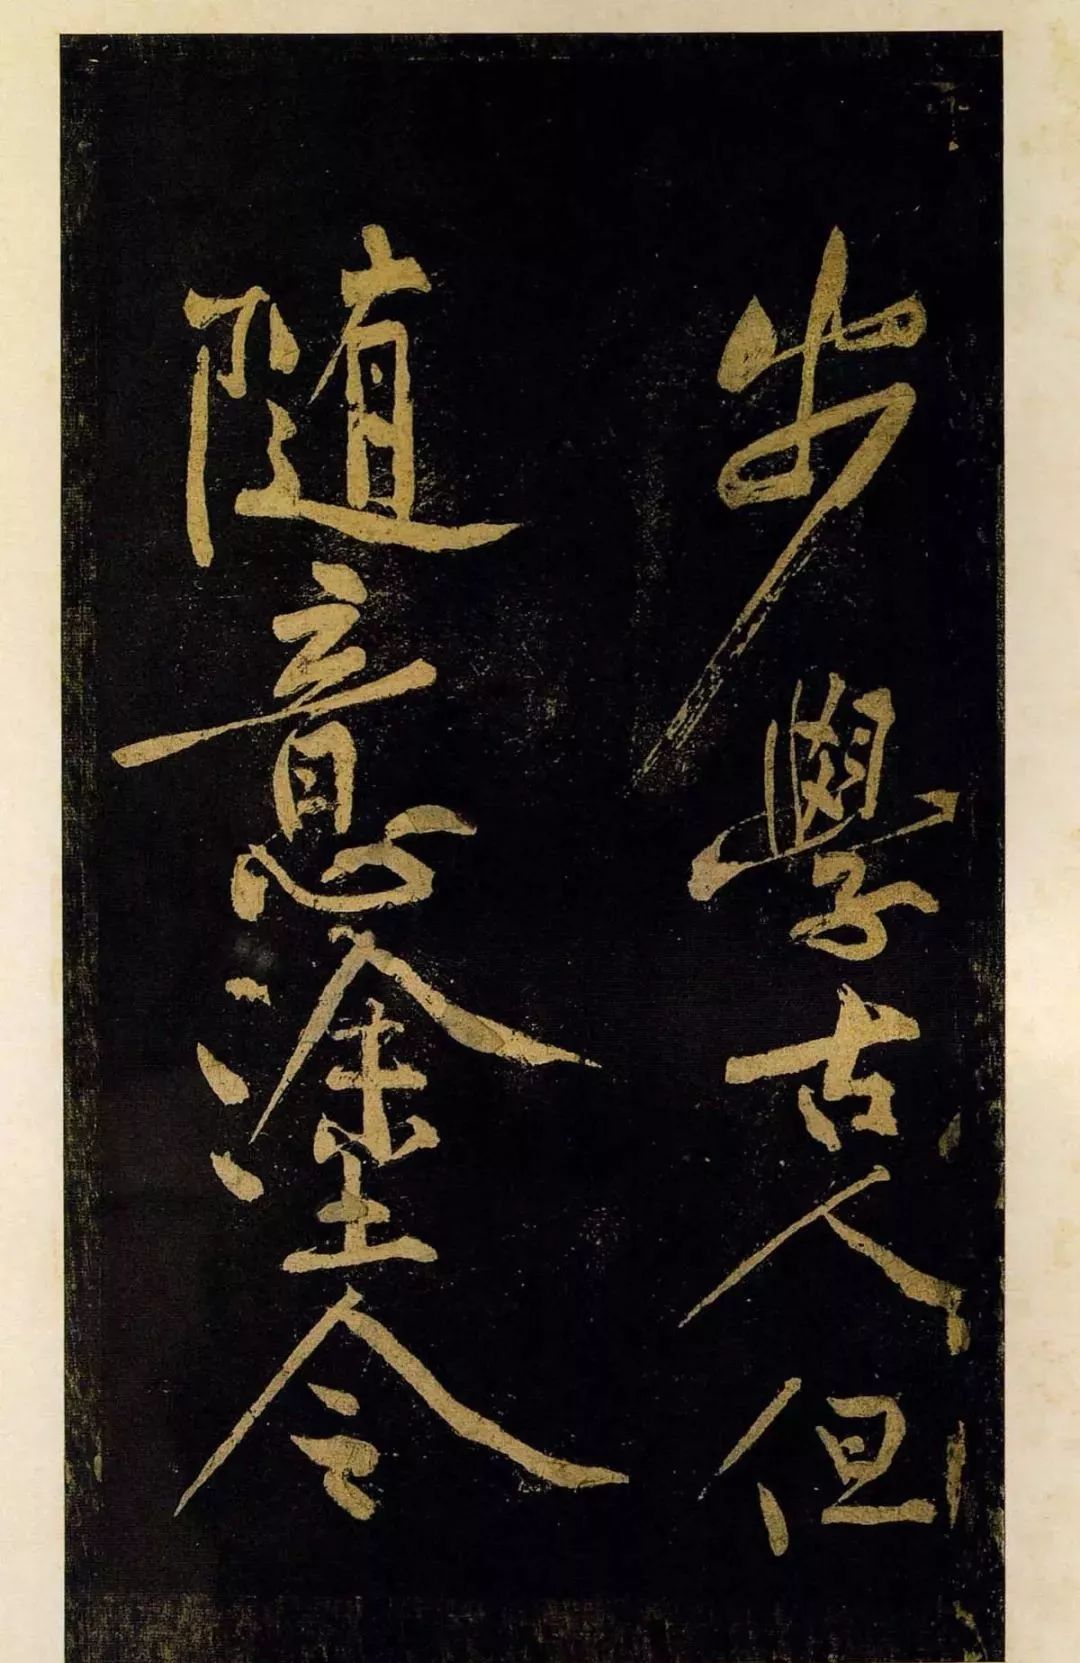 步學古人但
隨意塗今